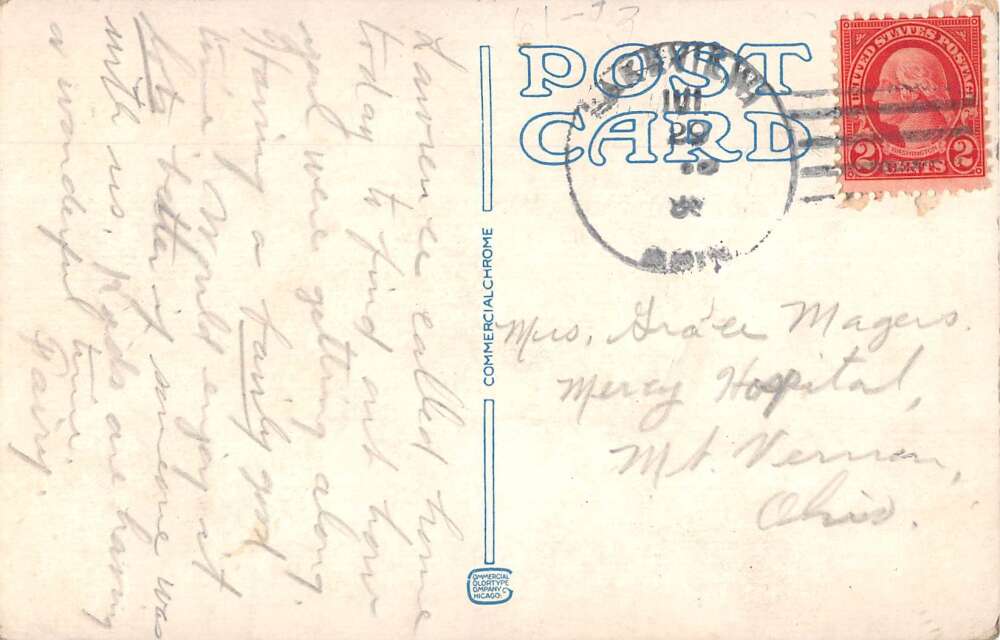 61-73
POST
CARD
LAKEVIEW
JUL
29
OHIO
UNITED STATES POSTAGE
WASHINGTON
2 CENTS 2
Mrs. Grace Magers.
Mercy Hospital,
Mt. Vernon,
Ohio.
COMMERCIALCHROME
COMMERCIAL
COLORTYPE
COMPANY
CHICAGO
Lawrence called home
today to find out how
you were getting along.
Having a fairly good
time. Would enjoy it
lots better if someone was
with us. Kids are having
a wonderful time.
Daisy.